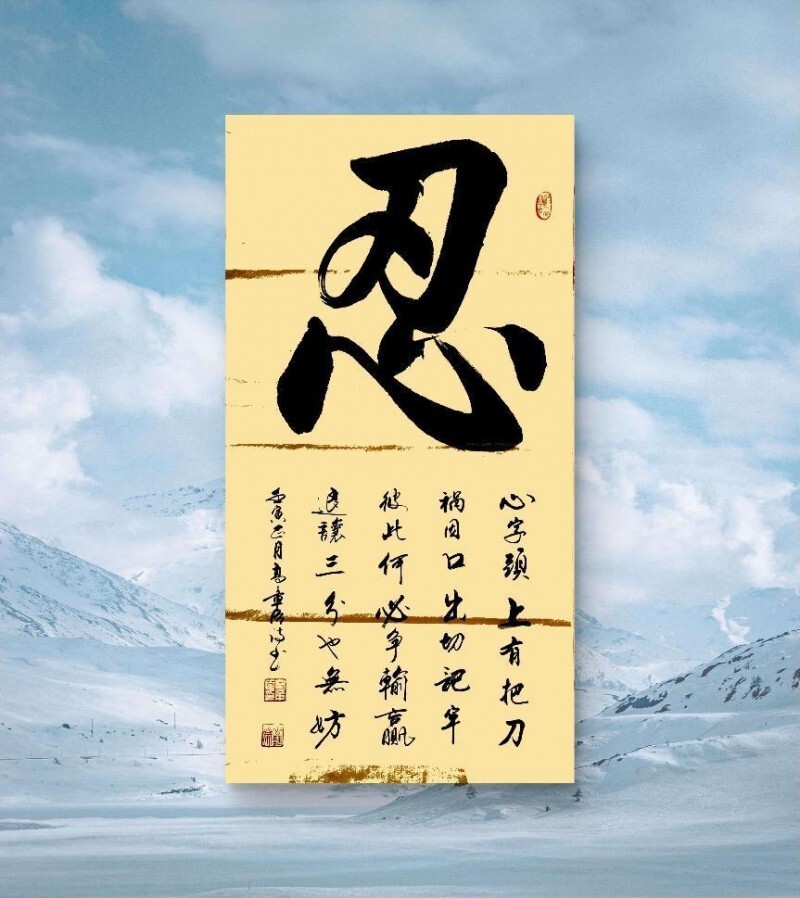 忍
心字頭上有把刀
禍因口出切記牢
彼此何必争輸贏
退讓三分也無妨
壬寅正月高重